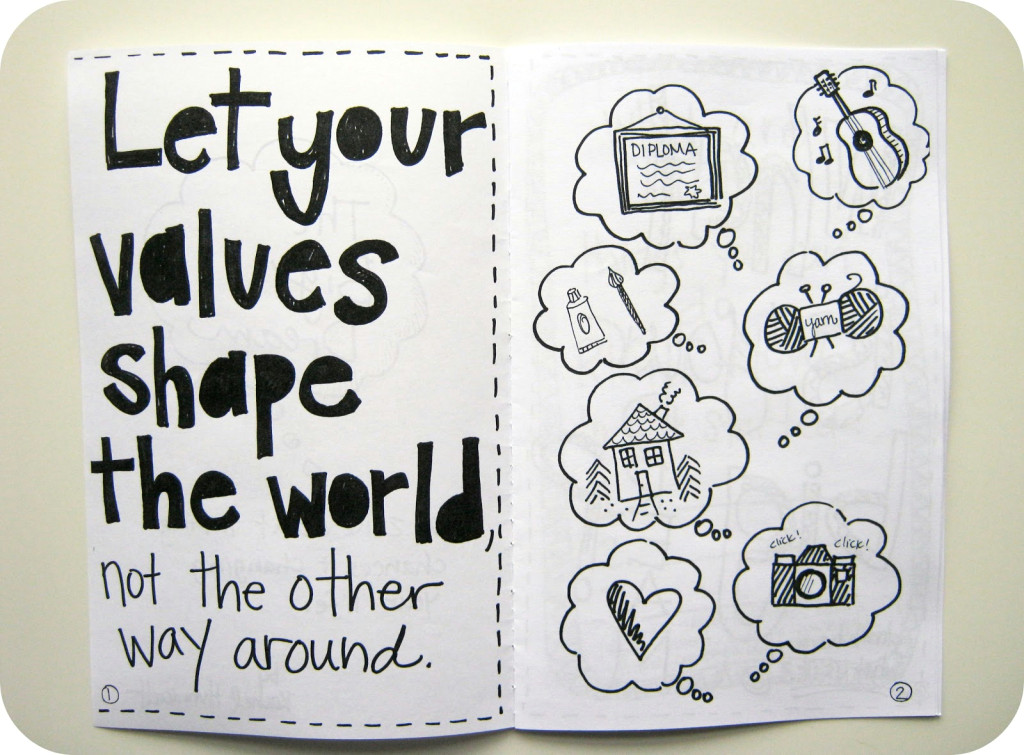 Let your
values
shape
the world,
not the other
way around.
1
DIPLOMA
yarn
click! click!
2